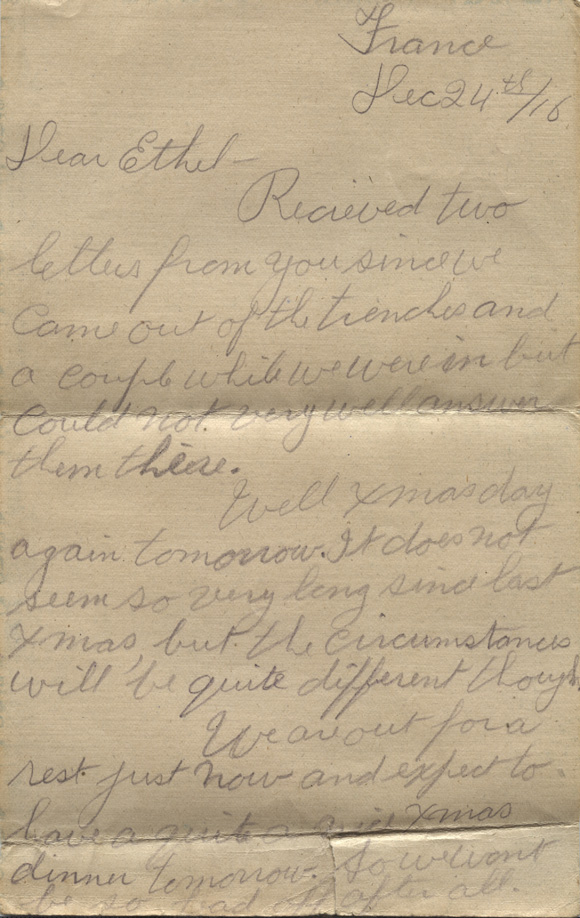 France
Dec 24th/16
Dear Ethel –
Recieved two
letters from you since we
came out of the trenches and
a couple while we were in but
could not very well answer
them there.
Well Xmas day
again tomorrow. It does not
seem so very long since last
Xmas, but the circumstances
will be quite different though
We are out for a
rest just now and expect to
have a quite a Xmas
dinner tomorrow. So we wont
be so bad off after all.